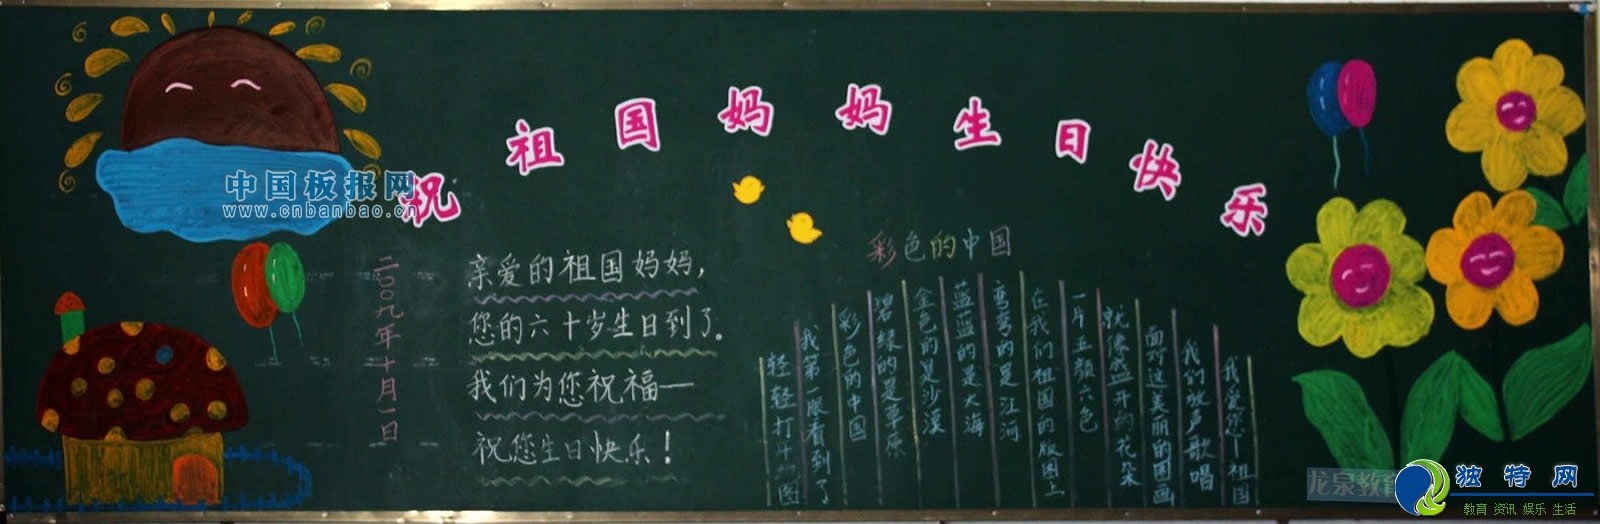 祝祖国妈妈生日快乐
中国板报网
www.cnbanbao.cn
二〇〇九年十月一日
亲爱的祖国妈妈，
您的六十岁生日到了。
我们为您祝福—
祝您生日快乐！
彩色的中国
轻轻打开 图
我第一眼看到了
彩色的中国
碧绿的是草原
金色的是沙漠
蓝蓝的是大海
弯弯的是江河
在我们祖国的版图上
一片五颜六色
就像盛开的花朵
面对这美丽的图画
我们放声歌唱
我爱您 祖国
龙泉教育
独特网
教育 资讯 娱乐 生活